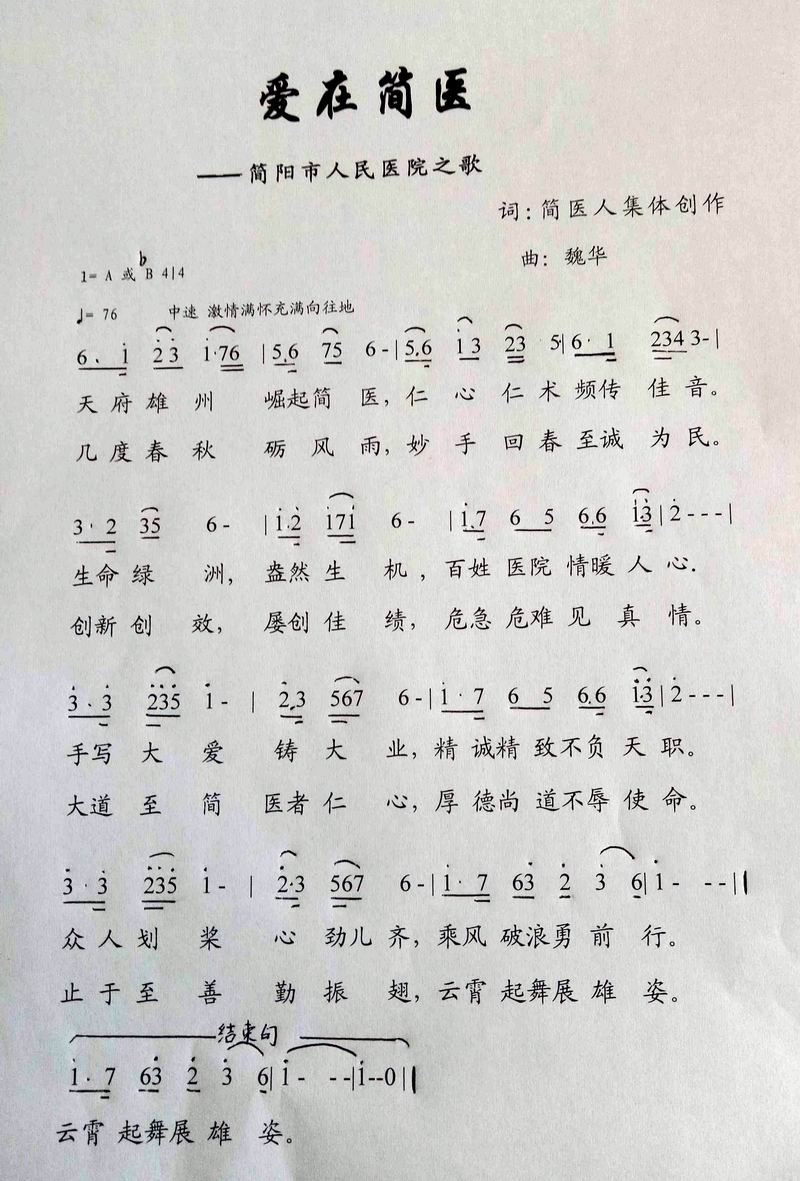 爱在简医
——简阳市人民医院之歌
词：简医人集体创作
曲：魏华
1= A 或 ᵇB 4|4
♩= 76 中速 激情满怀充满向往地
6. i 2 3 1·76 |5.6 75 6-|5.6 i 3 23 5|6· 1 234 3-|
天府雄州 崛起简医，仁心仁术频传佳音。
几度春秋 砺风雨，妙手回春至诚为民。
3· 2 35 6- |i·2 i7i 6- |i.7 6 5 6.6 i3|2---|
生命绿洲，盎然生机，百姓医院情暖人心.
创新创效，屡创佳绩，危急危难见真情。
3.3 235 i- | 2.3 567 6-|i·7 6 5 6.6 i3|2---|
手写大爱铸大业，精诚精致不负天职。
大道至简医者仁心，厚德尚道不辱使命。
3·3 235 i- | 2·3 567 6-|i·7 63 2 3 6|i- --||
众人划桨心劲儿齐，乘风破浪勇前行。
止于至善勤振翅，云霄起舞展雄姿。
结束句
i·7 63 2 3 6|i- --|i--0||
云霄起舞展雄姿。